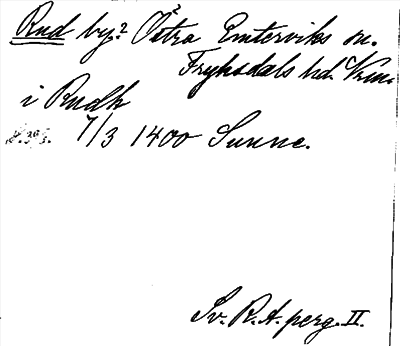 Rud by? Östra Emterviks sn.
Fryksdals hd. Vrm.
i Rudh
7/3 1400 Sunne.
Sv. R.A. perg. II.